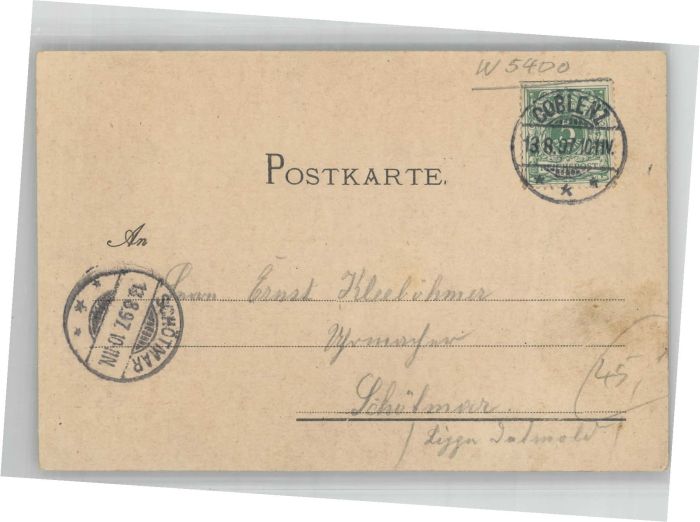 W 5400
COBLENZ
13.8.97.10-11V.
5
POSTKARTE.
An
Herrn Ernst Kleeböhmer
SCHÖTMAR
13.8.97.10-11N.
Uhrmacher
Schötmar.
(Lippe Detmold.
45,